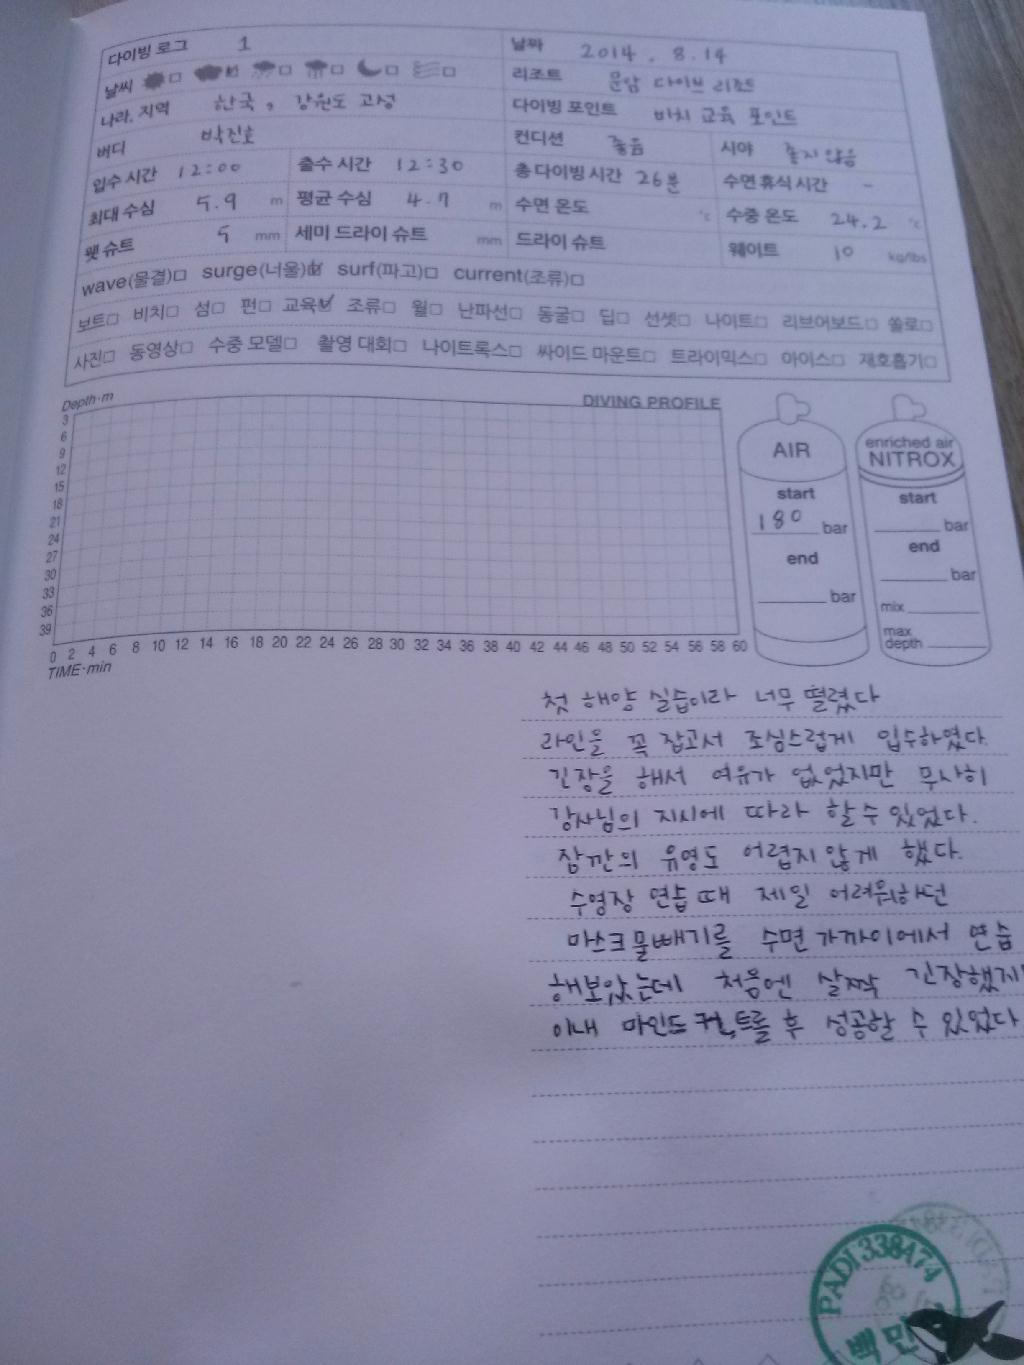 다이빙 로그 1 날짜 2014. 8. 14
날씨 리조트 문암 다이브 리조트
나라, 지역 한국, 강원도 고성 다이빙 포인트 비치 교육 포인트
버디 박진호 컨디션 좋음 시야 좋지 않음
입수 시간 12:00 출수 시간 12:30 총 다이빙 시간 26분 수면 휴식 시간 -
최대 수심 5.9 m 평균 수심 4.7 m 수면 온도 ℃ 수중 온도 24.2 ℃
웻 슈트 5 mm 세미 드라이 슈트 mm 드라이 슈트 웨이트 10 kg/lbs
wave(물결)□ surge(너울)☑ surf(파고)□ current(조류)□
보트□ 비치□ 섬□ 펀□ 교육☑ 조류□ 월□ 난파선□ 동굴□ 딥□ 선셋□ 나이트□ 리브어보드□ 쏠로□
사진□ 동영상□ 수중 모델□ 촬영 대회□ 나이트록스□ 싸이드 마운트□ 트라이믹스□ 아이스□ 재호흡기□
Depth·m
DIVING PROFILE
3
6
9
12
15
18
21
24
27
30
33
36
39
0 2 4 6 8 10 12 14 16 18 20 22 24 26 28 30 32 34 36 38 40 42 44 46 48 50 52 54 56 58 60
TIME·min
AIR
start
180 bar
end
bar
enriched air
NITROX
start
bar
end
bar
mix
max
depth
첫 해양 실습이라 너무 떨렸다
라인을 꼭 잡고서 조심스럽게 입수하였다.
긴장을 해서 여유가 없었지만 무사히
강사님의 지시에 따라 할 수 있었다.
잠깐의 유영도 어렵지 않게 했다.
수영장 연습 때 제일 어려워하던
마스크 물빼기를 수면 가까이에서 연습
해보았는데 처음엔 살짝 긴장했지만
이내 마인드 컨트롤 후 성공할 수 있었다
PADI 338474
백민